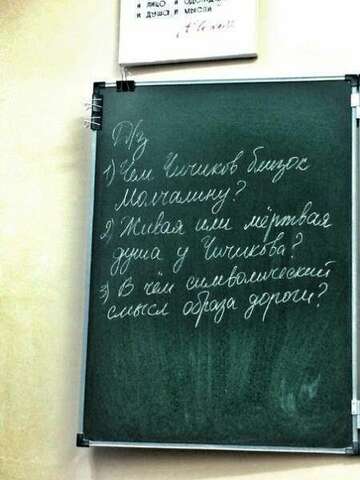 и лицо, и одежда,
и душа, и мысли
А. Чехов
Д/з
1) Чем Чичиков близок
Молчалину?
2) Живая или мёртвая
душа у Чичикова?
3) В чём символический
смысл образа дороги?